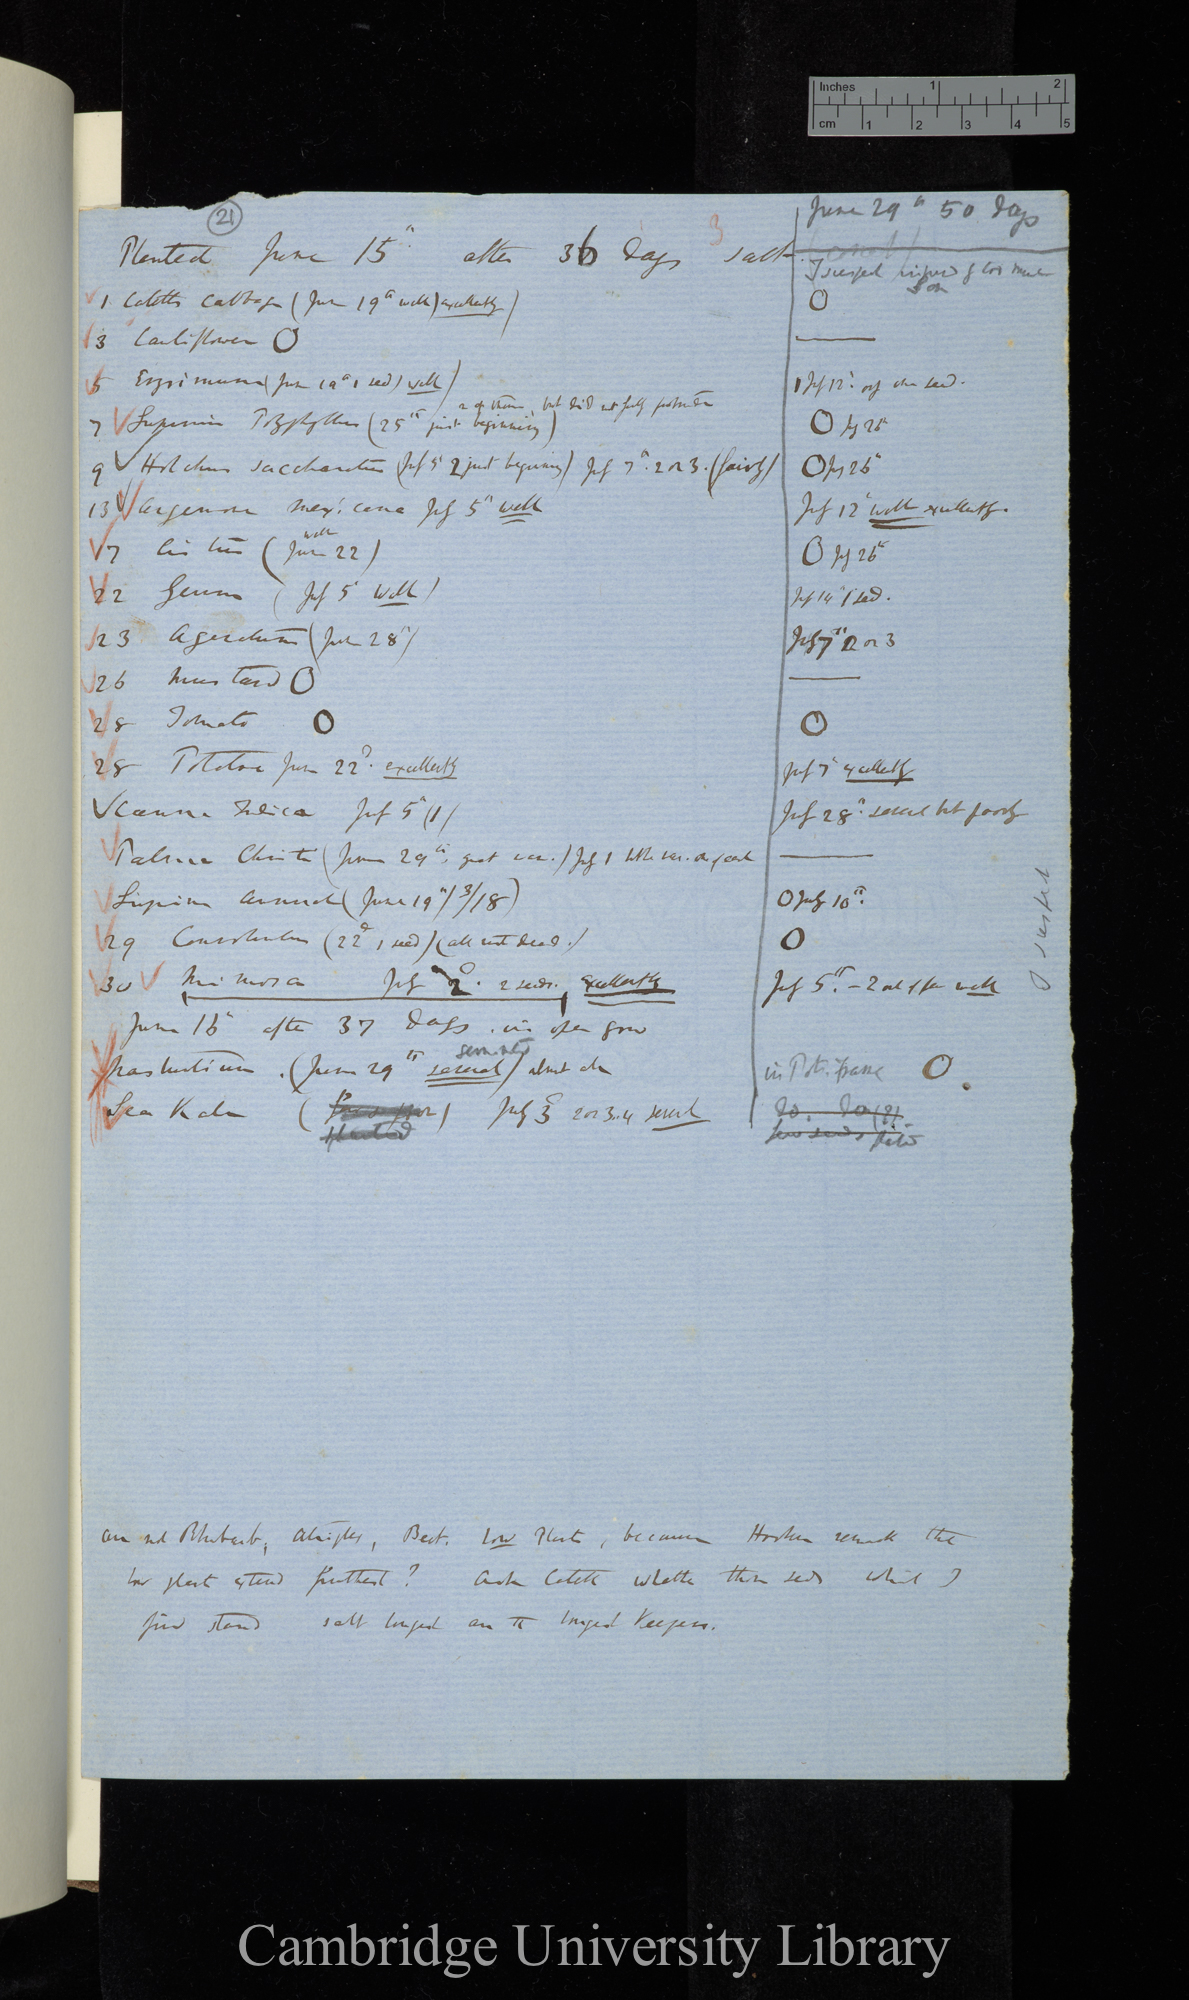 Inches 1 2
cm 1 2 3 4 5
21
June 29th 50 Days
Planted June 15th after 36 Days salt.
3
I suspect injured by too much
Sun
1 Catells Cabbage (June 19th well) excellently) O
3 Cauliflower O —
5 Erysimum (June 19th 1 seed) well) July 12th only one seed.
2 of them, but did not fully
7 Lupinus Polyphyllus (25th just beginning) O July 26th
9 Holchus saccharatus (July 5th 2 just beginning) July 7th. 2 or 3. (fairly) O July 26th
13 Argemone mexicana July 5th well July 12th well excellently.
well
7 Cistus (June 22) O July 26th
22 Geum (July 5th well) July 14th 1 seed.
23 Ageratum (June 28th) July 7th 2 or 3
26 Mustard O —
28 Tomato O O
28 Potatoe June 22d. excellently July 7th excellently
Canna Indica July 5th (1) July 28th. several but poorly
Palma Christi (June 29th, great var.) July 1 little var. only one —
Lupin annual (June 19th/ 3/18) O July 10th.
29 Convolvulus (22d 1 seed) (all rest dead.) O
30 Mimosa July 2d. 2 seeds. excellently July 5th. – 2 out of few well
June 16th after 37 Days. in open
Nasturtium. (June 29th several) almost all in Pot. frame O.
Sea Kale ( ) July 3d 2 or 3. 4 several
Do. Do (2).
few seeds
are not Rhubarb, Atriplex, Beet. low Plants, because Hooker remarks that
low plants extend furthest? Ask Catell whether those seeds which I
find stand salt longest are the longest Keepers.
Cambridge University Library